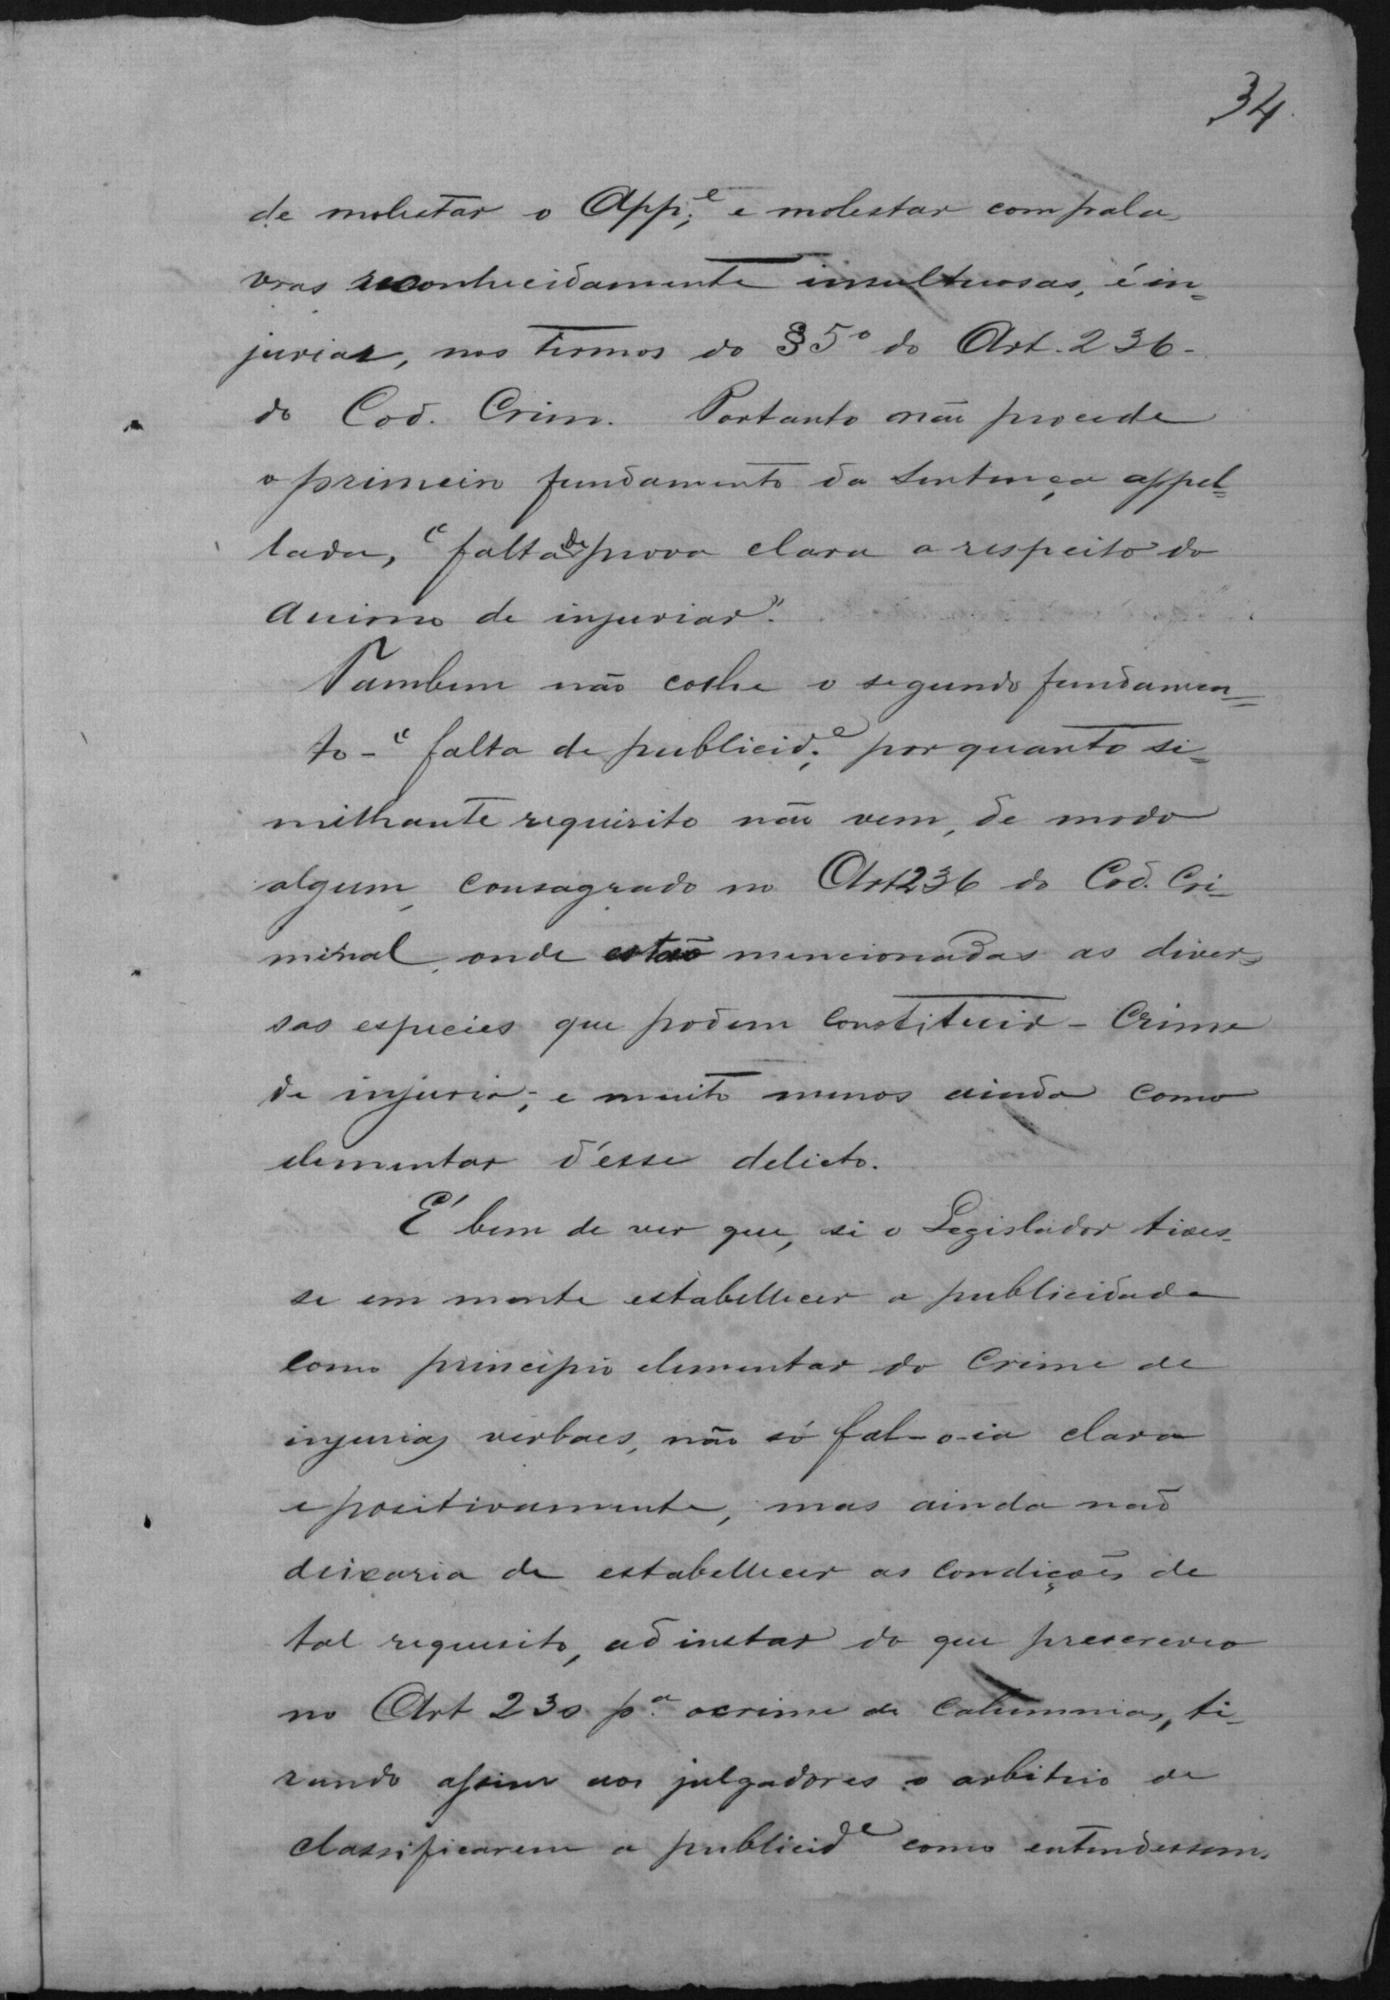 34.
de molestar o App.e e molestar com pala-
vras reconhecidamente insultuosas, é in=
juriar, nos termos do § 5º do Art. 236 -
do Cod. Crim. Portanto não procede
o primeiro fundamento da sentença appel=
lada, "falta de prova clara a respeito do
animo de injuriar".
Tambem não colhe o segundo fundamen=
to - "falta de publicid.e porquanto si=
milhante requisito não vem, de modo
algum, consagrado no Art 236 do Cod. Cri-
minal, onde estão mencionadas as diver-
sas especies que podem constituir - Crime
de injuria; e muito menos ainda como
elementar d'esse delicto.
É bem de ver que, si o Legislador tives-
se em mente estabellecer a publicidade
como principio elementar do crime de
injurias verbaes, não só fal-o-ia clara
e positivamente, mas ainda não
deixaria de estabellecer as condições de
tal requesito, ad instar do que prescreveo
no Art 230 p.a o crime de calumnia, ti-
rando assim aos julgadores o arbitrio de
classificarem a publicide como entendessem.